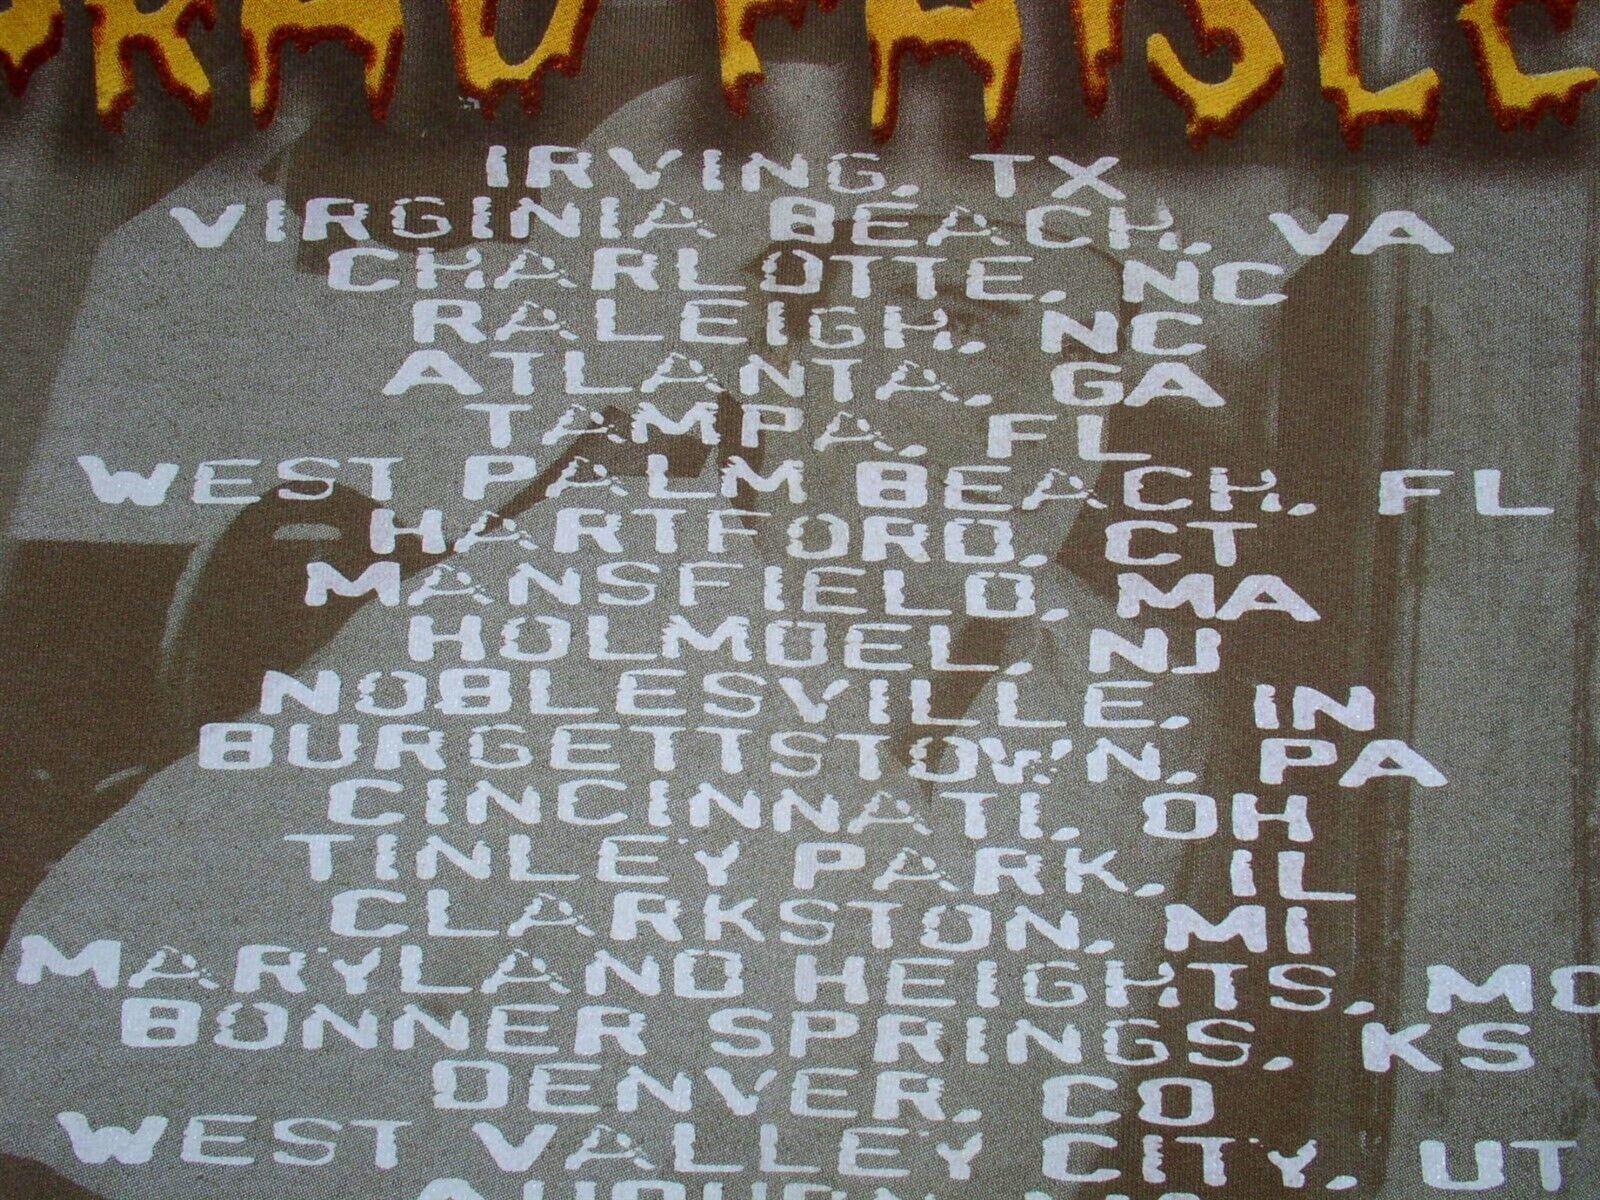 BRAD PAISLE
IRVING, TX
VIRGINIA BEACH, VA
CHARLOTTE, NC
RALEIGH, NC
ATLANTA, GA
TAMPA, FL
WEST PALM BEACH, FL
HARTFORD, CT
MANSFIELD, MA
HOLMDEL, NJ
NOBLESVILLE, IN
BURGETTSTOWN, PA
CINCINNATI, OH
TINLEY PARK, IL
CLARKSTON, MI
MARYLAND HEIGHTS, MO
BONNER SPRINGS, KS
DENVER, CO
WEST VALLEY CITY, UT